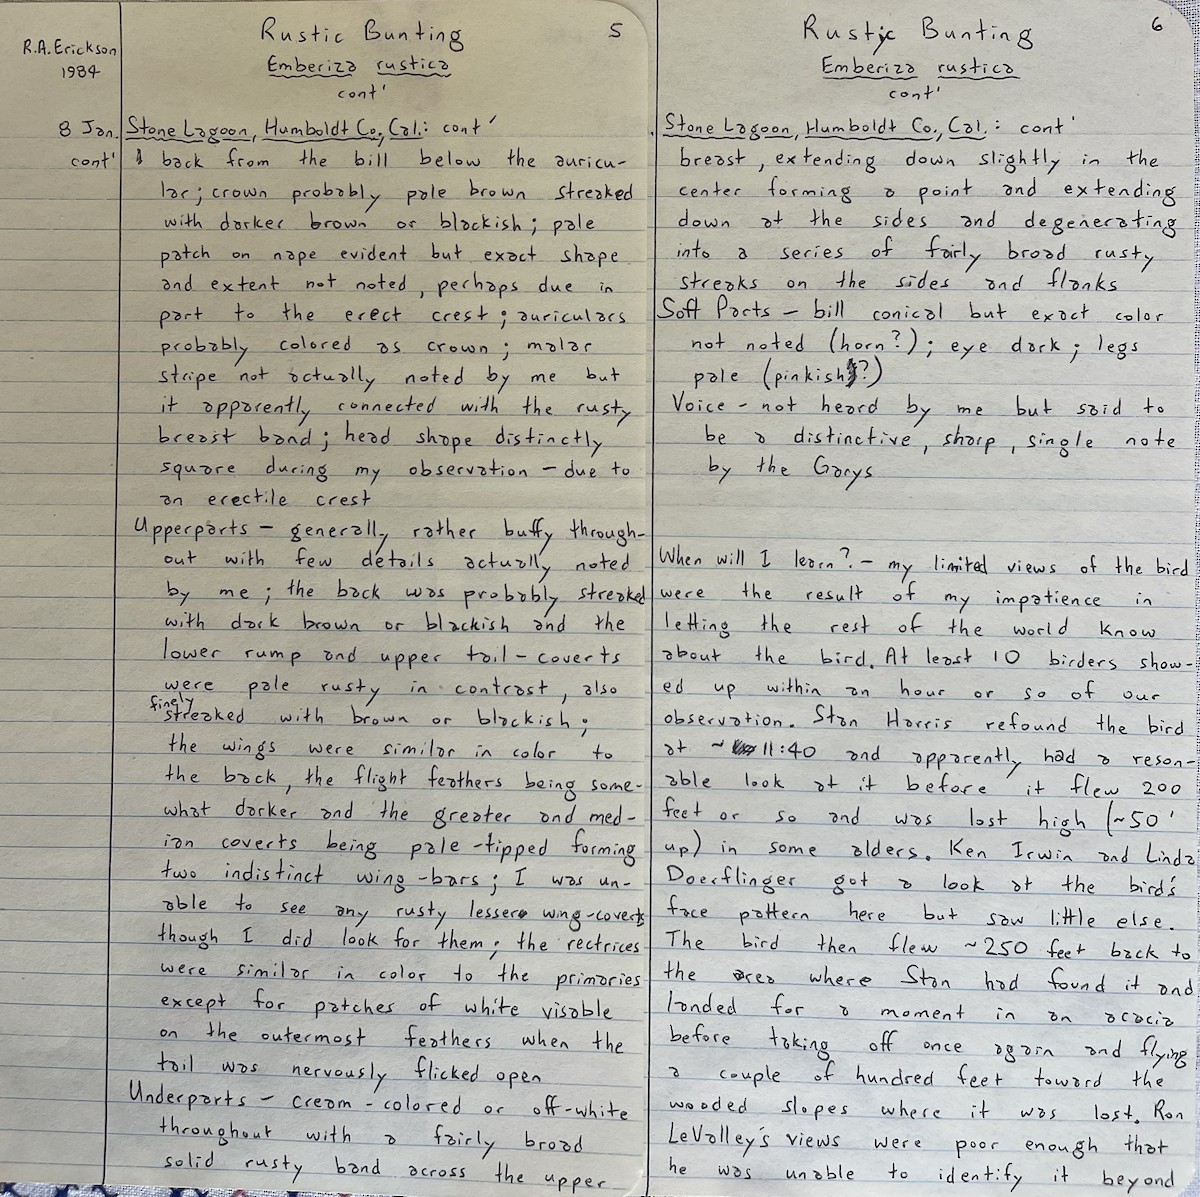 R.A. Erickson
1984
Rustic Bunting
5
Emberiza rustica
cont'
8 Jan. Stone Lagoon, Humboldt Co., Cal.: cont'
cont' back from the bill below the auricu-
lar; crown probably pale brown streaked
with darker brown or blackish; pale
patch on nape evident but exact shape
and extent not noted, perhaps due in
part to the erect crest; auriculars
probably colored as crown; malar
stripe not actually noted by me but
it apparently connected with the rusty
breast band; head shape distinctly
square during my observation - due to
an erectile crest
Upperparts - generally rather buffy through-
out with few details actually noted
by me; the back was probably streaked
with dark brown or blackish and the
lower rump and upper tail-coverts
were pale rusty in contrast, also
finely streaked with brown or blackish;
the wings were similar in color to
the back, the flight feathers being some-
what darker and the greater and med-
ian coverts being pale-tipped forming
two indistinct wing-bars; I was un-
able to see any rusty lesser wing-coverts
though I did look for them; the rectrices
were similar in color to the primaries
except for patches of white visable
on the outermost feathers when the
tail was nervously flicked open
Underparts - cream-colored or off-white
throughout with a fairly broad
solid rusty band across the upper
Rustic Bunting
6
Emberiza rustica
cont'
Stone Lagoon, Humboldt Co., Cal.: cont'
breast, extending down slightly in the
center forming a point and extending
down at the sides and degenerating
into a series of fairly broad rusty
streaks on the sides and flanks
Soft Parts - bill conical but exact color
not noted (horn?); eye dark; legs
pale (pinkish?)
Voice - not heard by me but said to
be a distinctive, sharp, single note
by the Garys
When will I learn? - my limited views of the bird
were the result of my impatience in
letting the rest of the world know
about the bird. At least 10 birders show-
ed up within an hour or so of our
observation. Stan Harris refound the bird
at ~ 11:40 and apparently had a reson-
able look at it before it flew 200
feet or so and was lost high (~50'
up) in some alders. Ken Irwin and Linda
Doerflinger got a look at the bird's
face pattern here but saw little else.
The bird then flew ~250 feet back to
the area where Stan had found it and
landed for a moment in an acacia
before taking off once again and flying
a couple of hundred feet toward the
wooded slopes where it was lost. Ron
LeValley's views were poor enough that
he was unable to identify it beyond